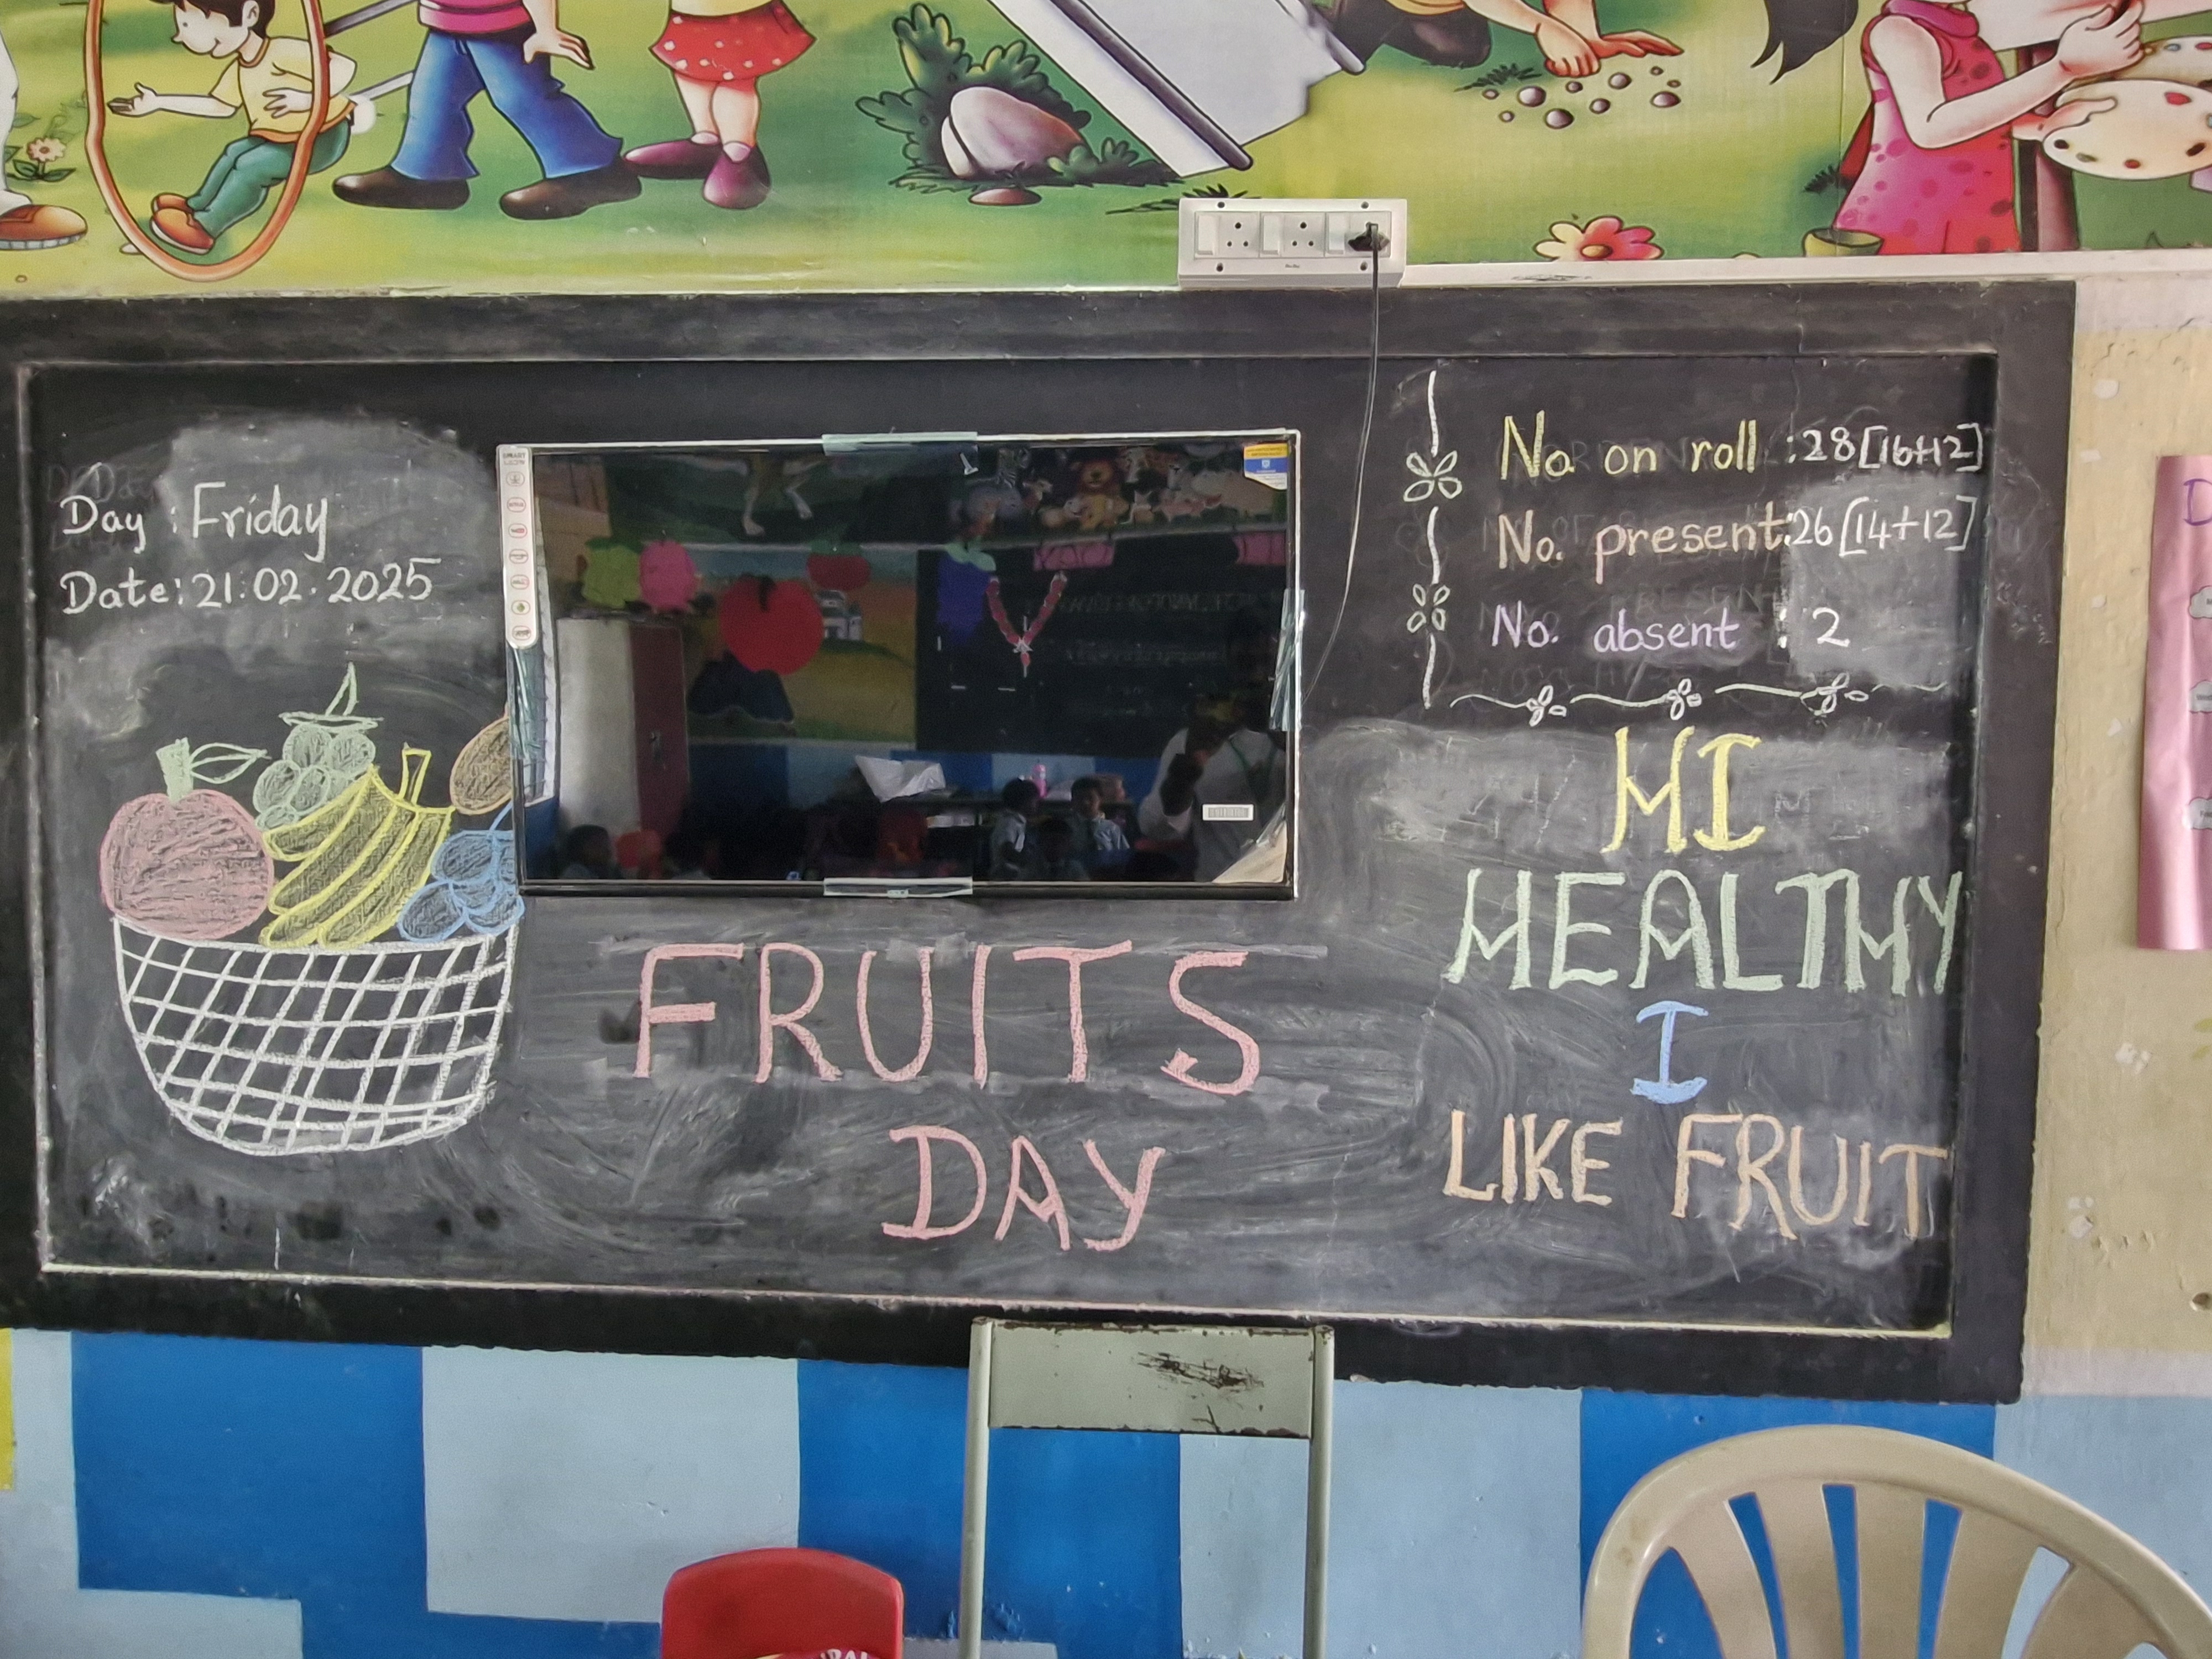 Day : Friday
Date: 21.02.2025
No on roll : 28[16+12]
No. present: 26[14+12]
No. absent : 2
HI
HEALTHY
I
LIKE FRUIT
FRUITS
DAY